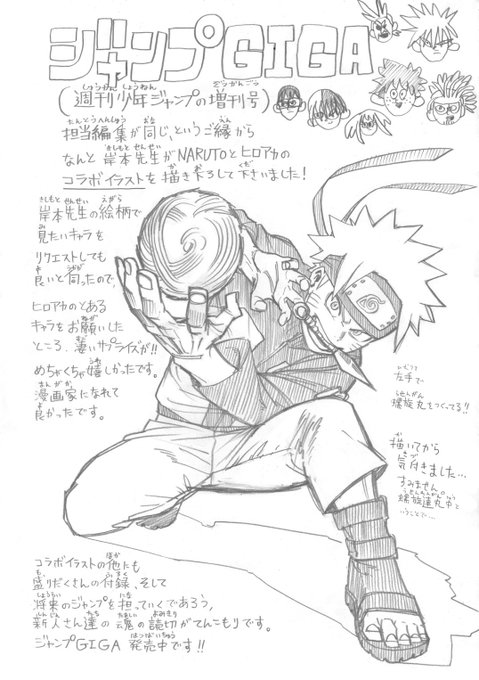 ジャンプGIGA
(週刊少年ジャンプの増刊号)
担当編集が同じ、というご縁から
なんと岸本先生がNARUTOとヒロアカの
コラボイラストを描き下ろして下さいました!
岸本先生の絵柄で
見たいキャラを
リクエストしても
良いと伺ったので、
ヒロアカのとある
キャラをお願いした
ところ、凄いサプライズが!!
めちゃくちゃ嬉しかったです。
漫画家になれて
良かったです。
左手で
螺旋丸をつくってる!!
描いてから
気付きました…
すみません
螺旋連丸中と
いうことで…
コラボイラストの他にも
盛りだくさんの付録、そして
将来のジャンプを担っていくであろう、
新人さん達の魂の読切がてんこもりです。
ジャンプGIGA 発売中です!!